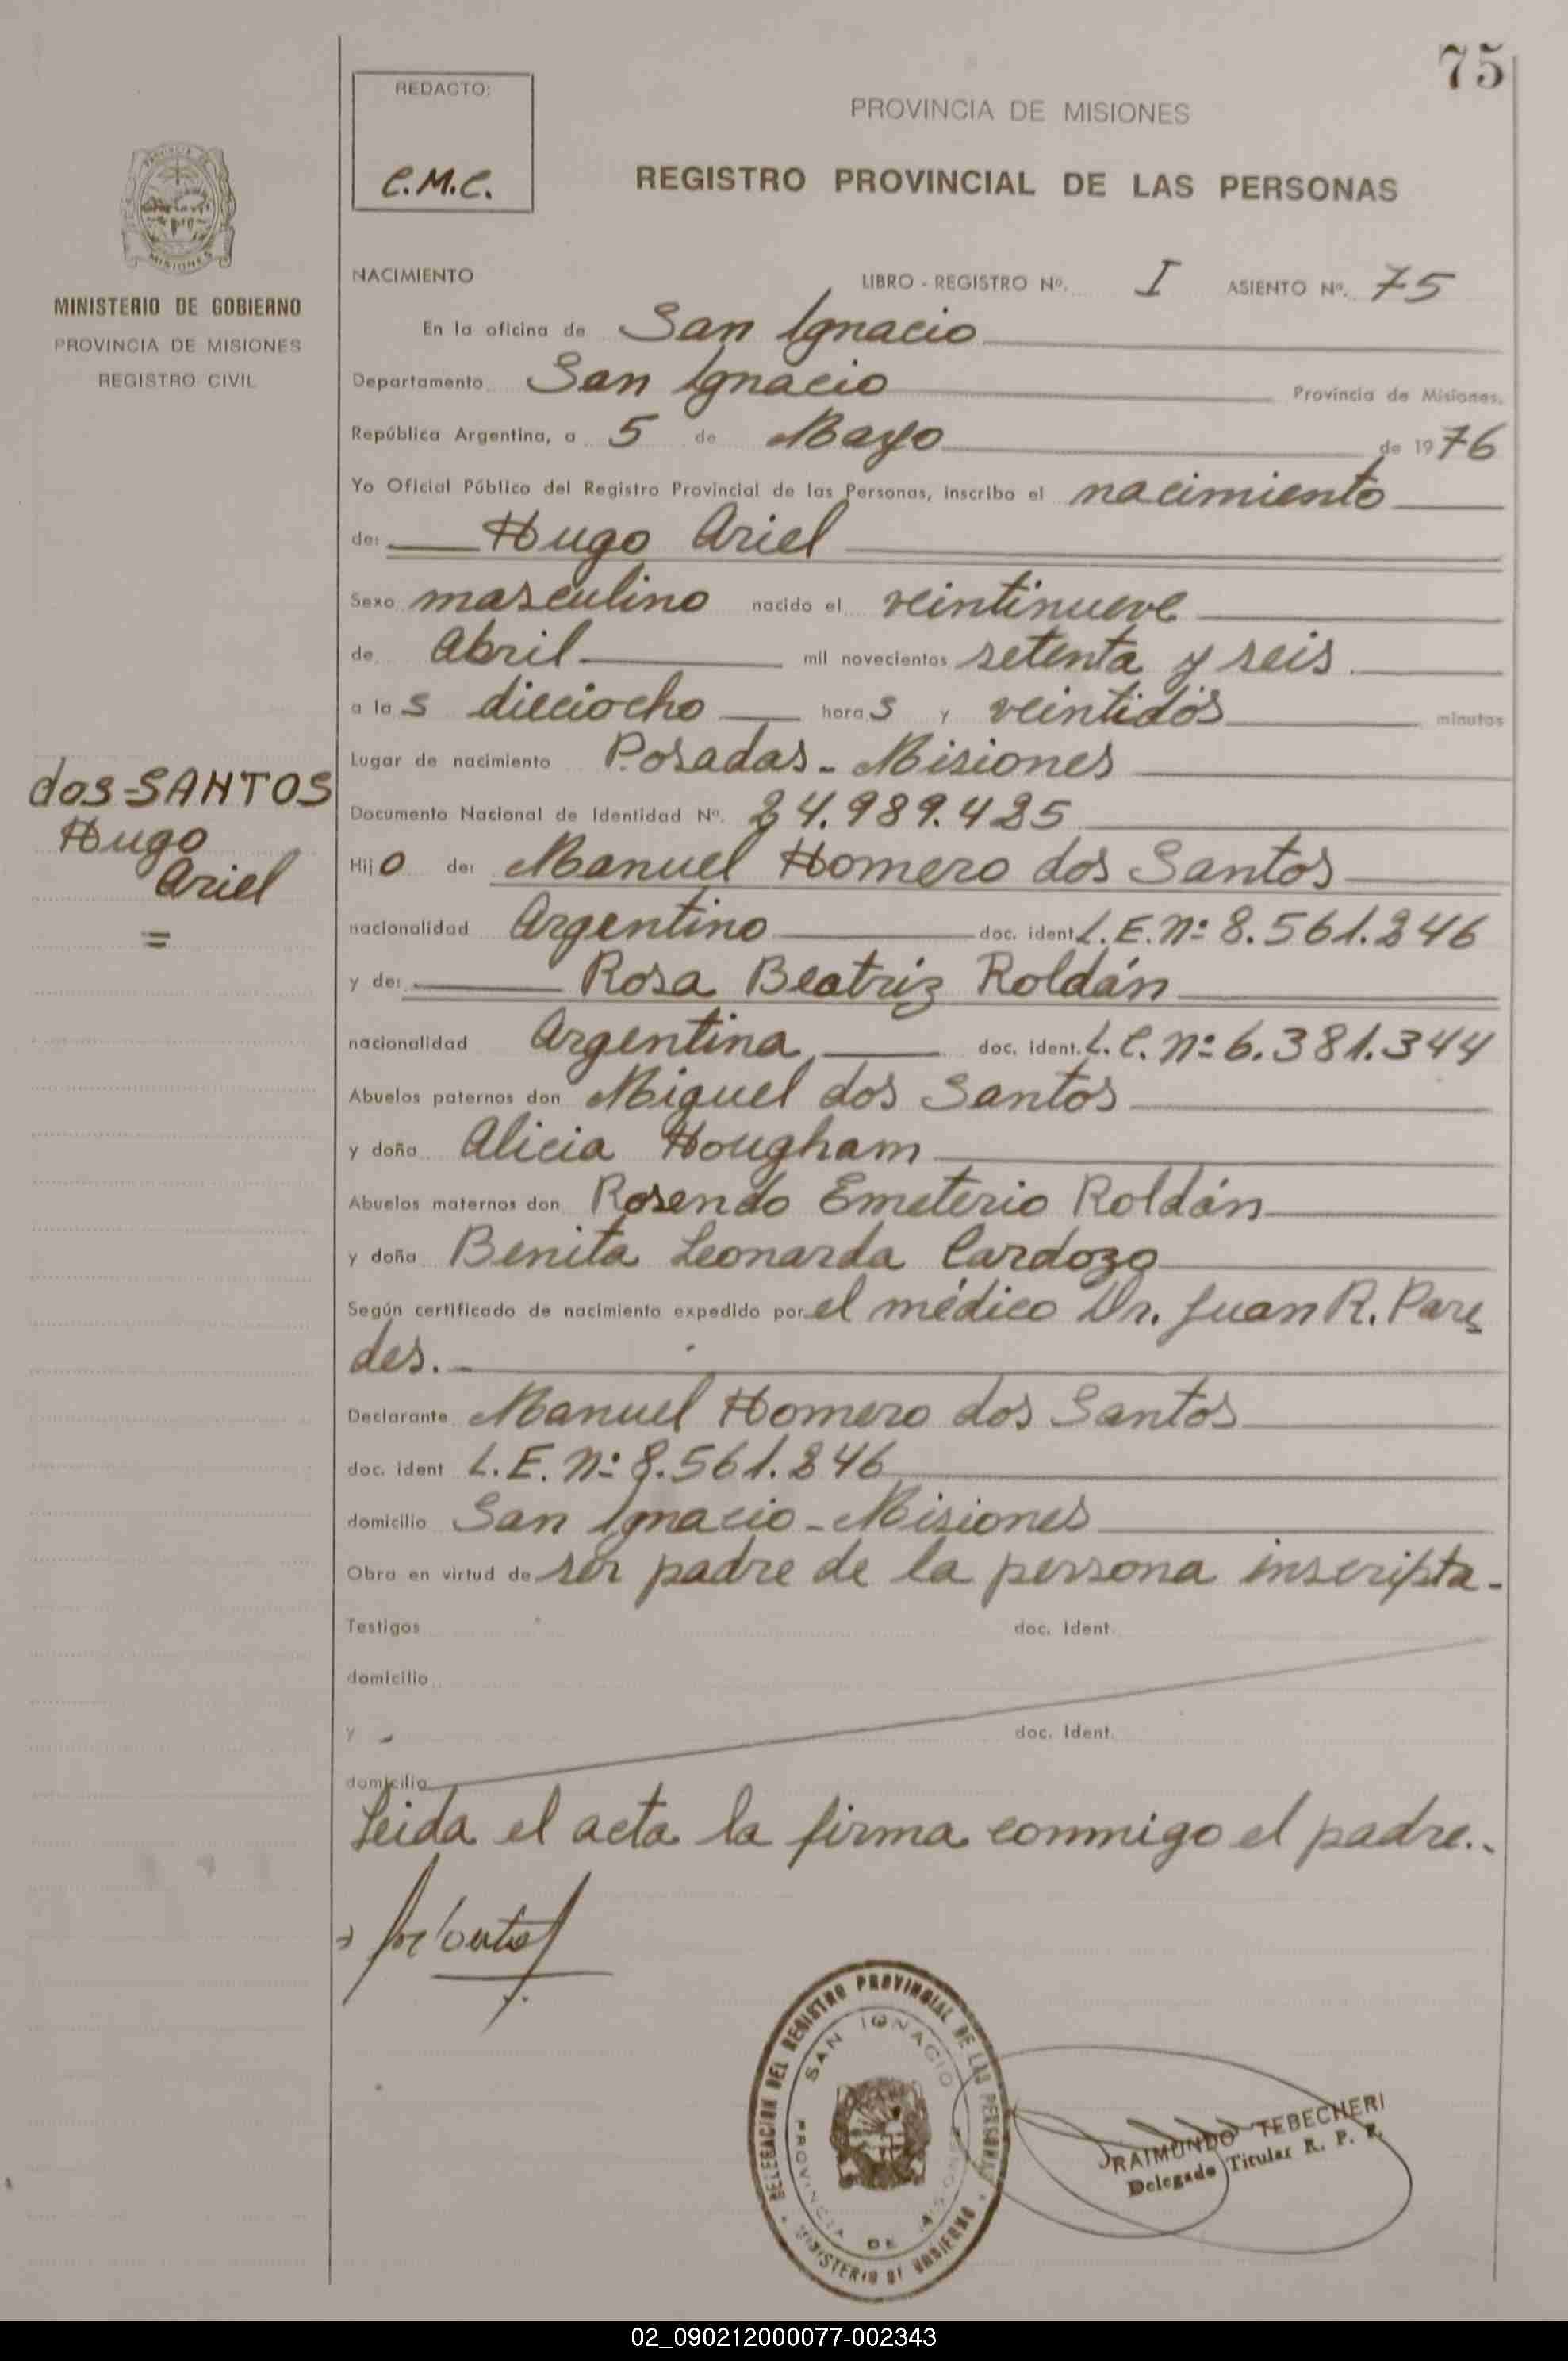 75
REDACTO:
C.M.C.
PROVINCIA DE MISIONES
REGISTRO PROVINCIAL DE LAS PERSONAS
MISIONES
MINISTERIO DE GOBIERNO
PROVINCIA DE MISIONES
REGISTRO CIVIL
NACIMIENTO LIBRO - REGISTRO Nº. I ASIENTO Nº. 75
En la oficina de San Ignacio
Departamento San Ignacio Provincia de Misiones.
República Argentina, a 5 de Mayo de 1976
Yo Oficial Público del Registro Provincial de las Personas, inscribo el nacimiento
de: Hugo Ariel
Sexo masculino nacido el veintinueve
de Abril mil novecientos setenta y seis
a las dieciocho horas y veintidós minutos
Lugar de nacimiento Posadas - Misiones
dos SANTOS
Hugo
Ariel
=
Documento Nacional de Identidad Nº. 24.989.425
Hijo de: Manuel Homero dos Santos
nacionalidad Argentino doc. ident. L.E. Nº 8.561.246
y de: Rosa Beatriz Roldán
nacionalidad Argentina, doc. ident. L.C. Nº 6.381.344
Abuelos paternos don Miguel dos Santos
y doña Alicia Hougham
Abuelos maternos don Rosendo Emeterio Roldán
y doña Benita Leonarda Cardozo
Según certificado de nacimiento expedido por el médico Dr. Juan R. Pare
des.-
Declarante Manuel Homero dos Santos
doc. ident L.E. Nº 8.561.246
domicilio San Ignacio - Misiones
Obra en virtud de ser padre de la persona inscripta.-
Testigos doc. ident.
domicilio
y doc. ident.
domicilio
Leida el acta la firma conmigo el padre..
DELEGACION DEL REGISTRO PROVINCIAL DE LAS PERSONAS
SAN IGNACIO
PROVINCIA DE MISIONES
MINISTERIO DE GOBIERNO
RAIMUNDO TEBECHERI
Delegado Titular R. P. P.
02_090212000077-002343